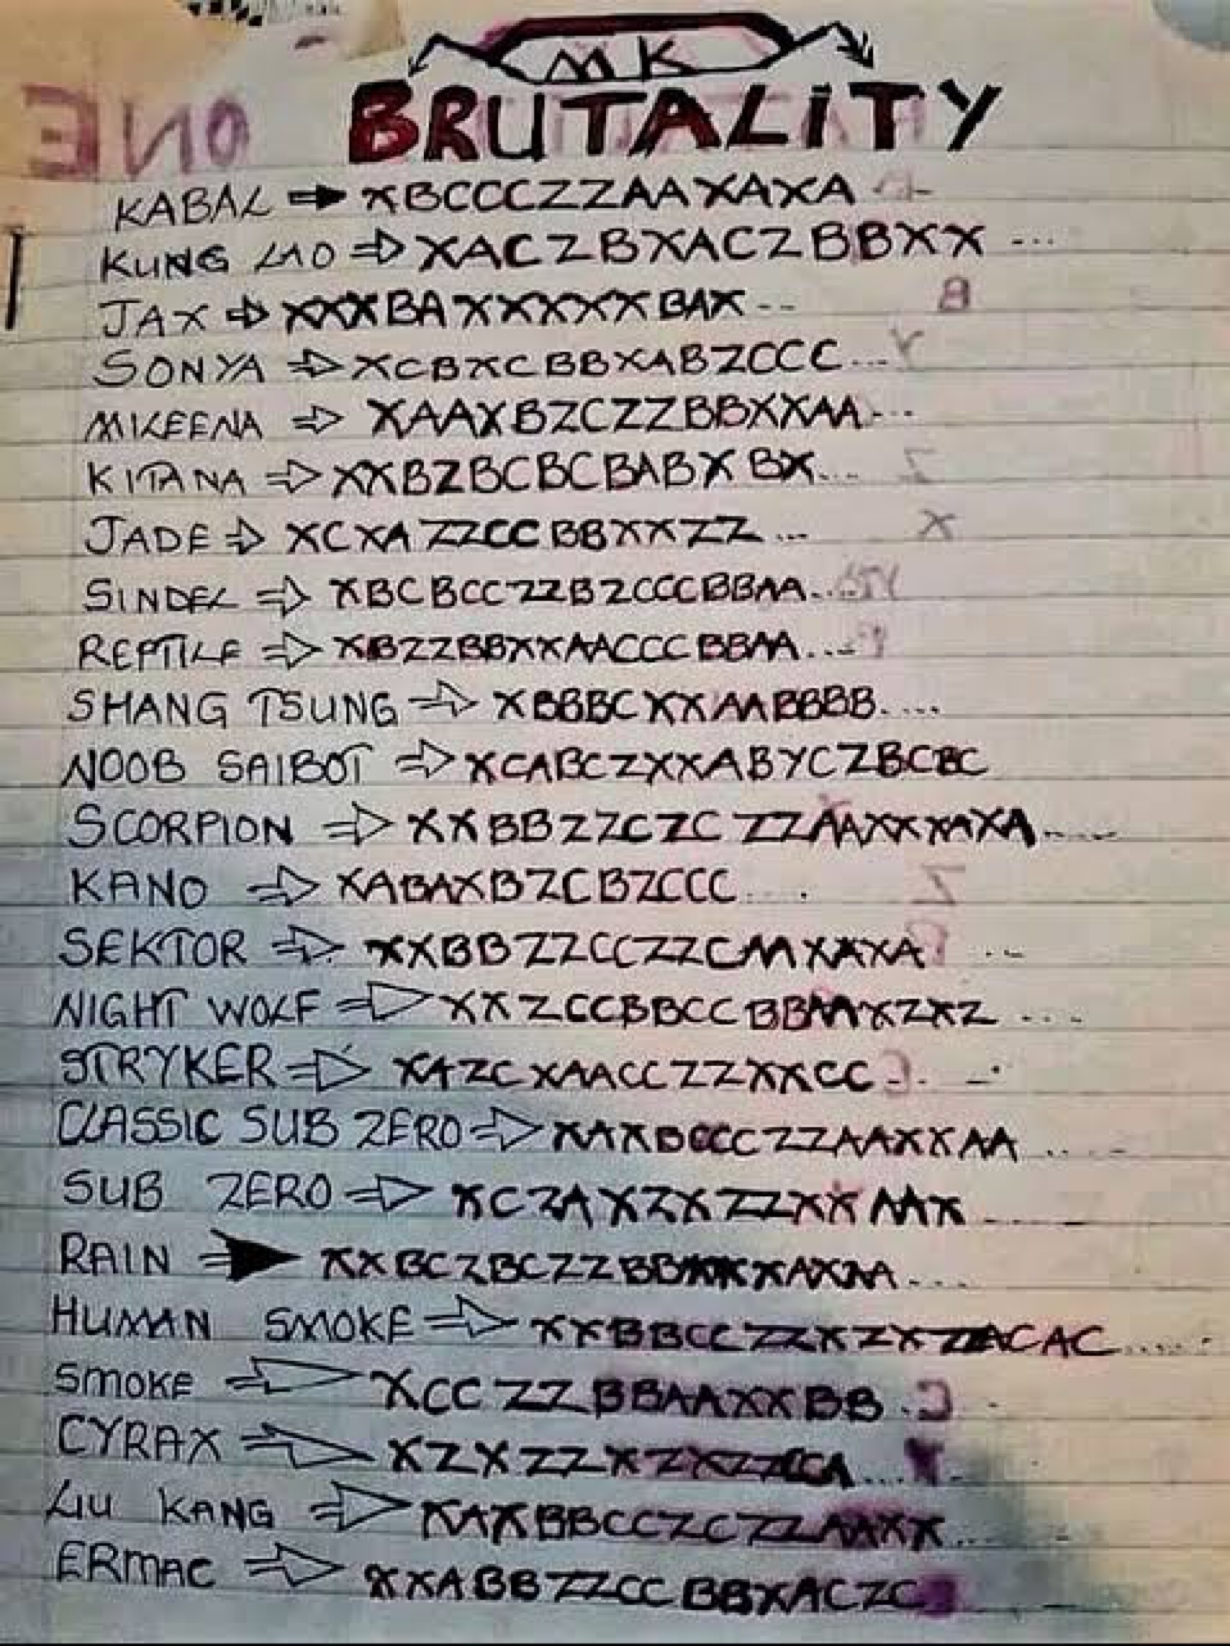 MK
BRUTALITY
ONE
KABAL ⇒ XBCCCZZAAXAXA
KUNG LAO ⇒ XACZBXACZBBXX ...
JAX ⇒ XXXBAXXXXXXBAX--
SONYA ⇒ XCBXCBBXABZCCC...
MILEENA ⇒ XAAXBZCZZBBXXAA...
KITANA ⇒ XXBZBCBCBABXBX...
JADE ⇒ XCXAZZCCBBXXZZ...
SINDEL ⇒ XBCBCCZZBZCCCBBAA...
REPTILE ⇒ XBZZBBXXAACCCBBAA...
SHANG TSUNG ⇒ XBBBCXXAABBBB....
NOOB SAIBOT ⇒ XCABCZXXABYCZBCBC
SCORPION ⇒ XXBBZZCZCZZAAXXXAXA....
KANO ⇒ XABAXBZCBZCCC....
SEKTOR ⇒ XXBBZZCCZZCAAXAXA ...
NIGHT WOLF ⇒ XXZCCBBCCBBAAXZXZ ....
STRYKER ⇒ XAZCXAACCZZXXCC
CLASSIC SUB ZERO ⇒ XAXBCCCZZAAXXAA ....
SUB ZERO ⇒ XCZAXZXZZXXAAX ....
RAIN ⇒ XXBCZBCZZBB
HUMAN SMOKE ⇒ XXBBCCZZXZXZZACAC.....
SMOKE ⇒ XCCZZBBAAXXBB
CYRAX ⇒ XZXZZXZXZZ
LIU KANG ⇒ XAXBBCCZCZZAAXX...
ERMAC ⇒ XXABBZZCCBBXACZC